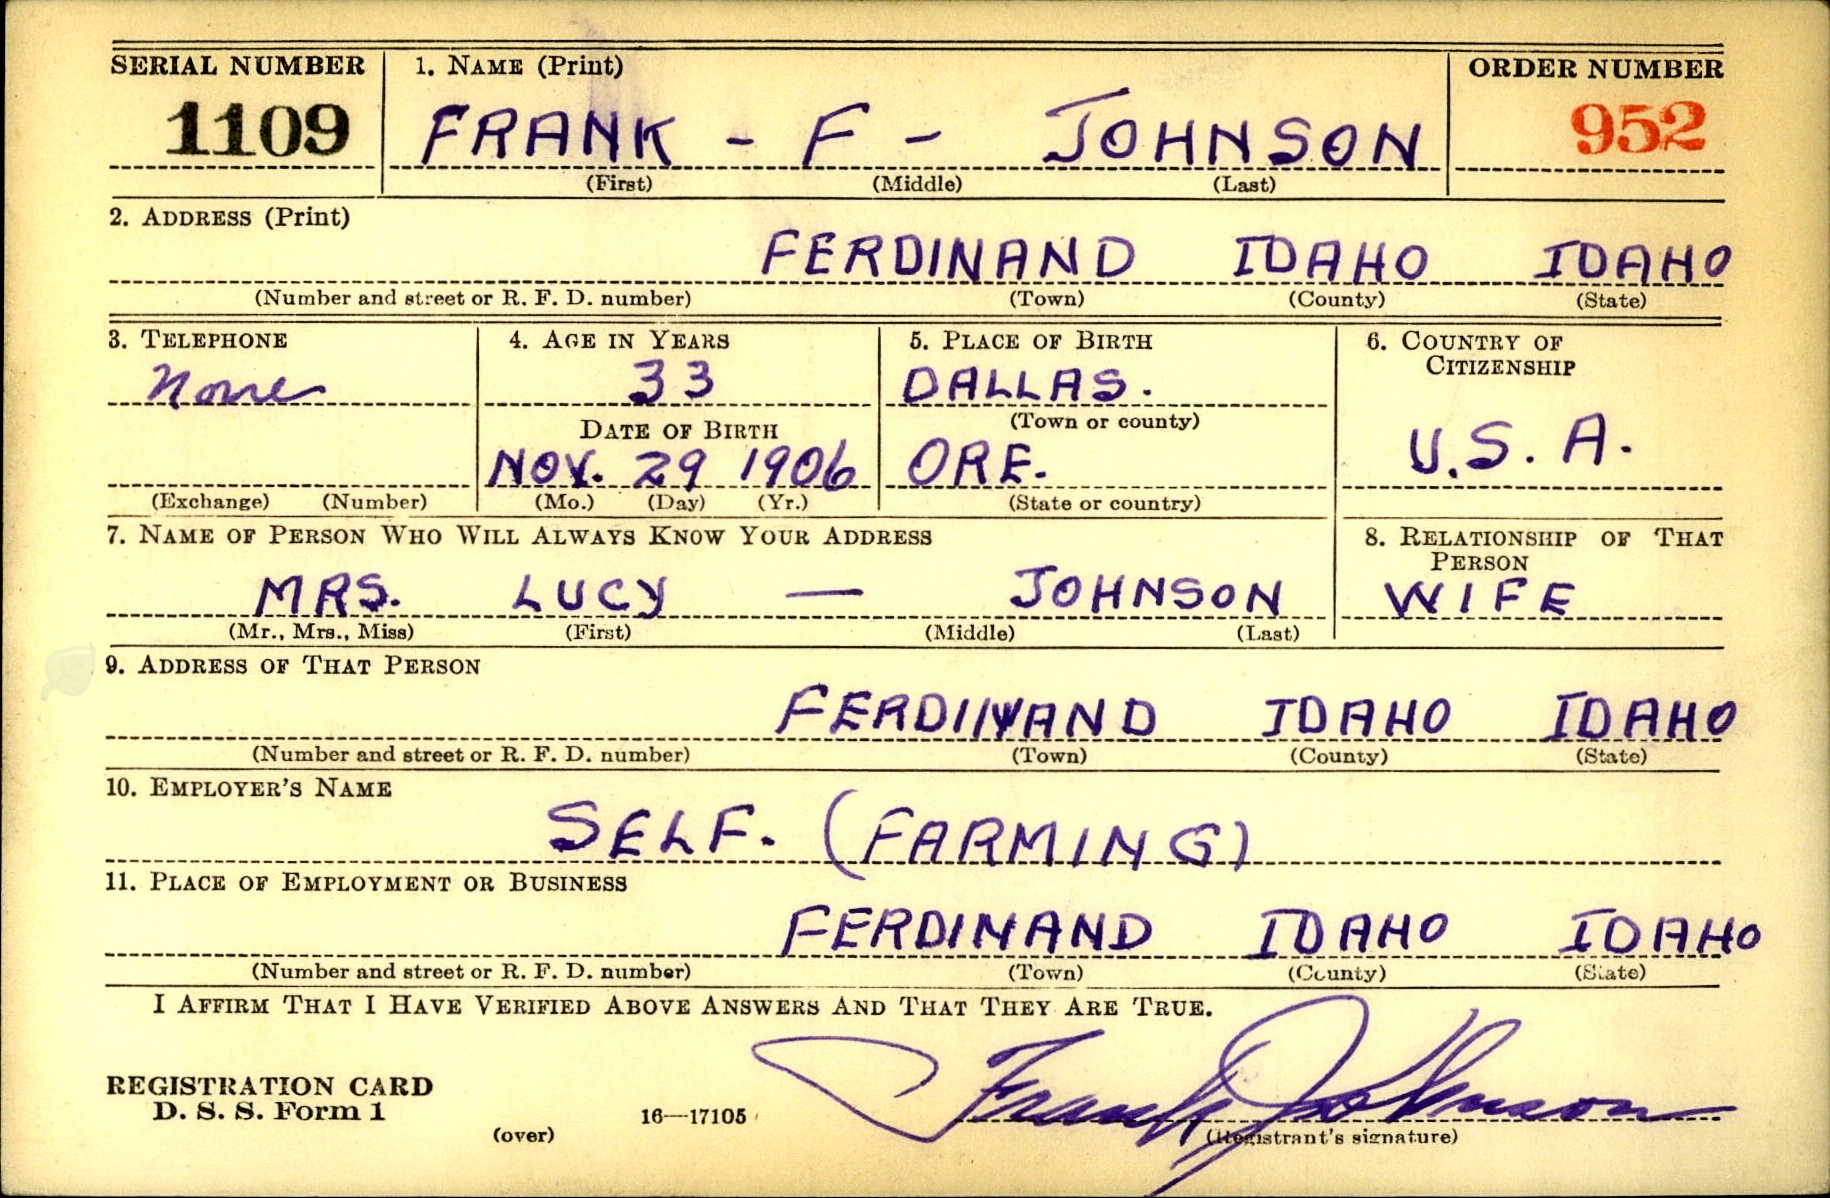 SERIAL NUMBER 1. NAME (Print) ORDER NUMBER
1109 FRANK - F - JOHNSON 952
(First) (Middle) (Last)
2. ADDRESS (Print)
FERDINAND IDAHO IDAHO
(Number and street or R. F. D. number) (Town) (County) (State)
3. TELEPHONE 4. AGE IN YEARS 5. PLACE OF BIRTH 6. COUNTRY OF
CITIZENSHIP
None 33 DALLAS.
(Town or county)
DATE OF BIRTH U.S.A.
NOV. 29 1906 ORE.
(Exchange) (Number) (Mo.) (Day) (Yr.) (State or country)
7. NAME OF PERSON WHO WILL ALWAYS KNOW YOUR ADDRESS 8. RELATIONSHIP OF THAT
PERSON
MRS. LUCY — JOHNSON WIFE
(Mr., Mrs., Miss) (First) (Middle) (Last)
9. ADDRESS OF THAT PERSON
FERDINAND IDAHO IDAHO
(Number and street or R. F. D. number) (Town) (County) (State)
10. EMPLOYER'S NAME
SELF. (FARMING)
11. PLACE OF EMPLOYMENT OR BUSINESS
FERDINAND IDAHO IDAHO
(Number and street or R. F. D. number) (Town) (County) (State)
I AFFIRM THAT I HAVE VERIFIED ABOVE ANSWERS AND THAT THEY ARE TRUE.
REGISTRATION CARD
D. S. S. Form 1 16—17105 Frank Johnson
(over) (Registrant's signature)